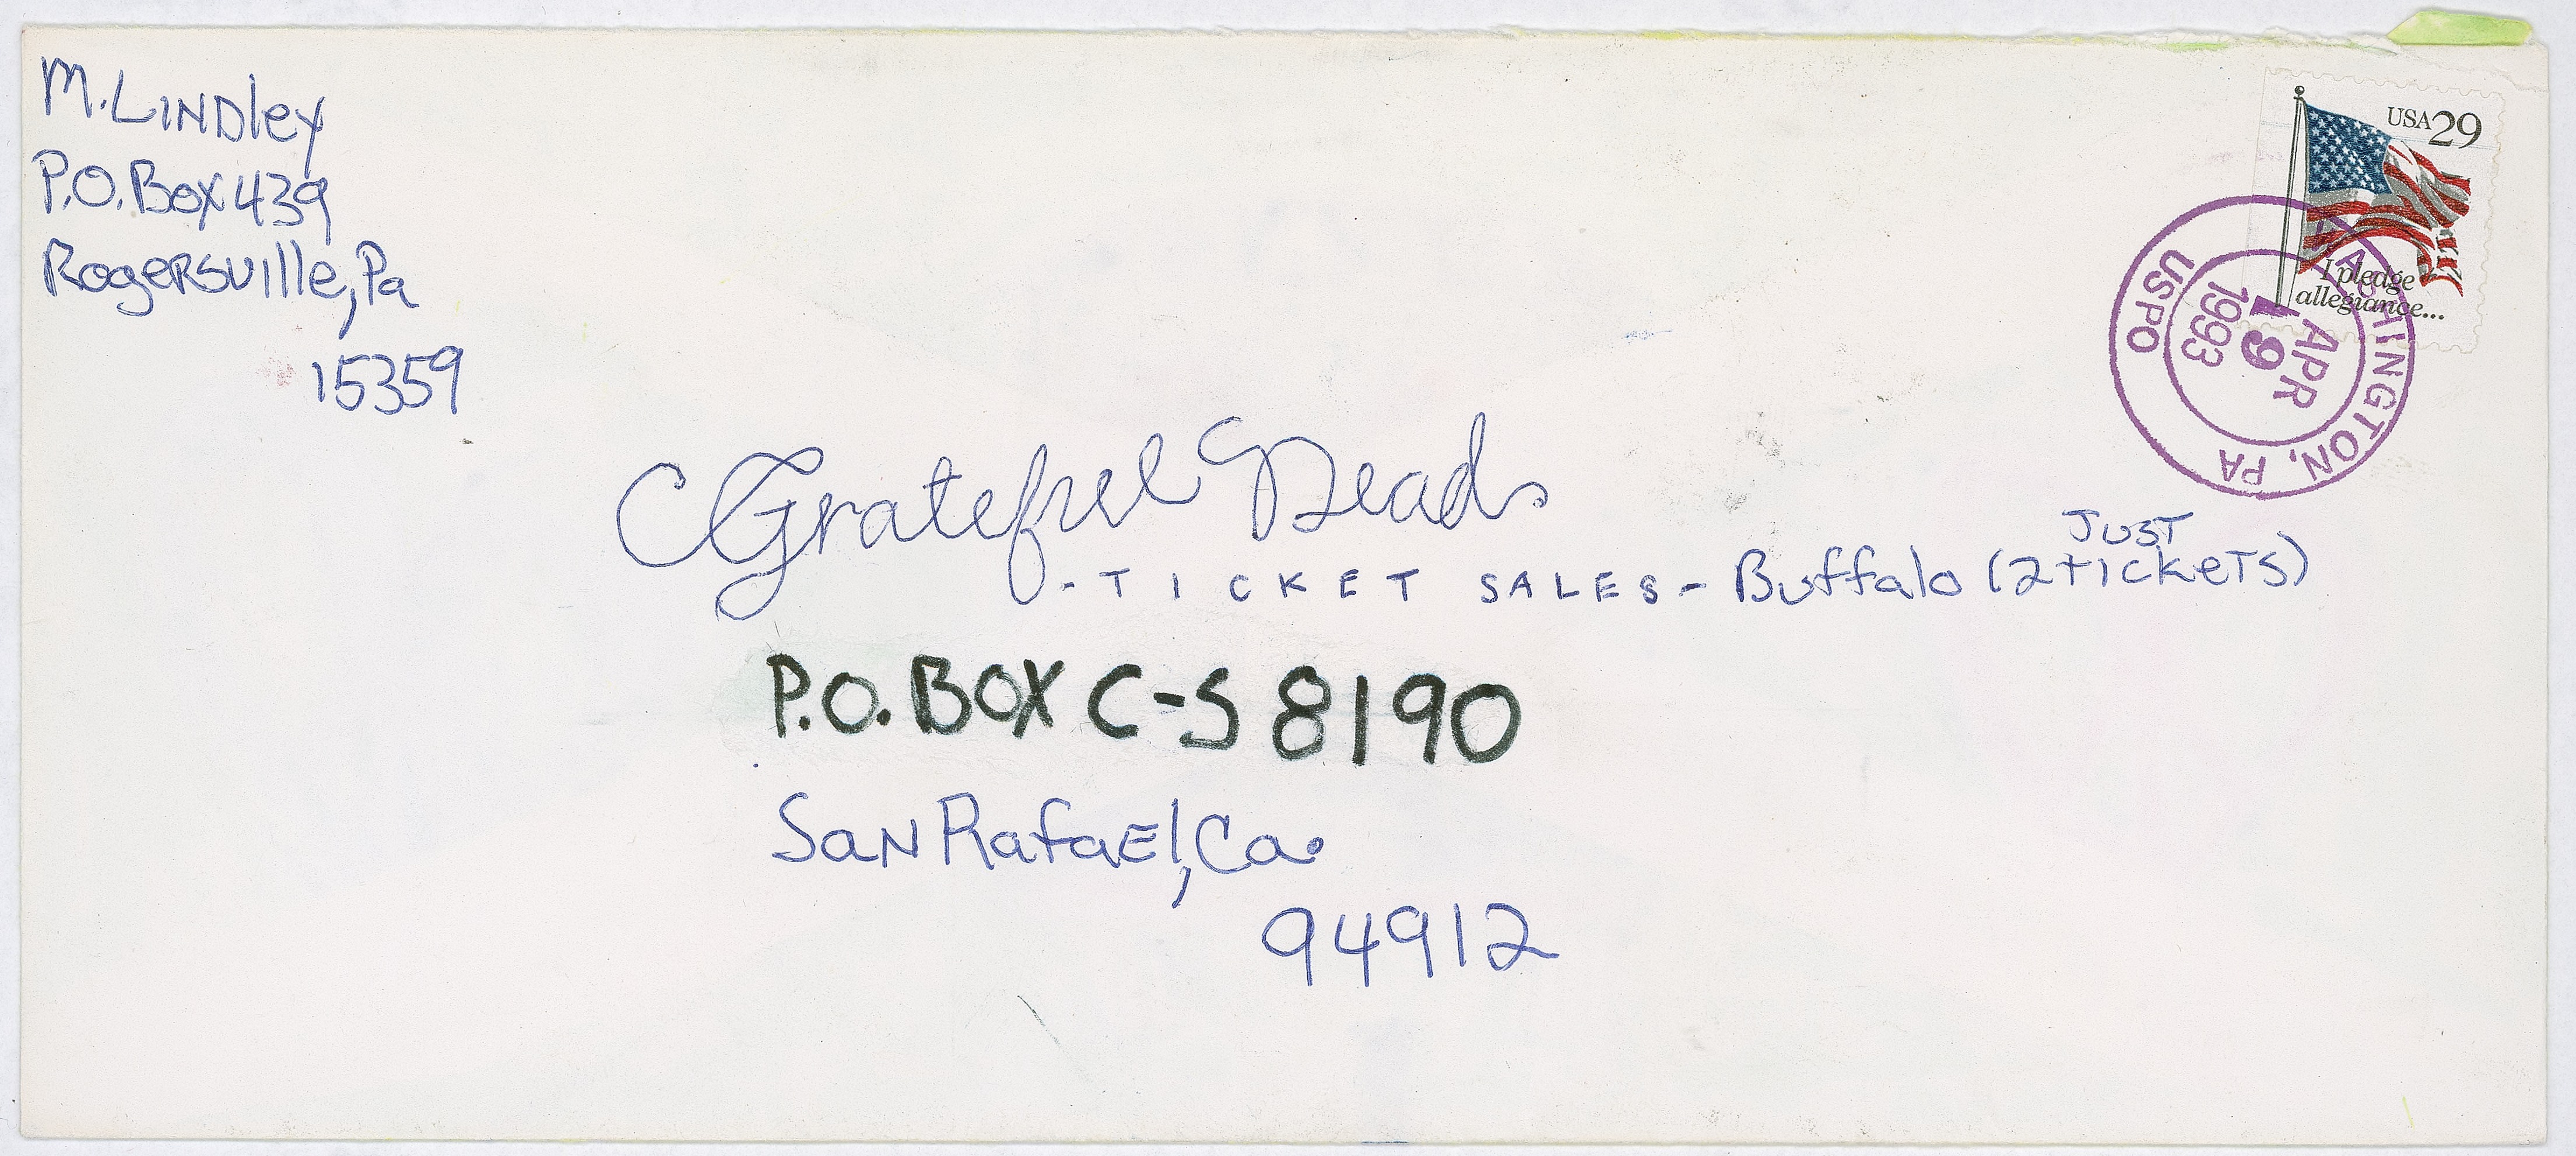 M. LINDley
P.O. Box 439
Rogersville, Pa
15359
USA 29
I pledge
allegiance...
WASHINGTON, PA
USPO
APR
19
1993
Grateful Dead
JUST
- TICKET SALES - Buffalo (2 tickets)
P.O. BOX C-S 8190
San Rafael, Ca.
94912